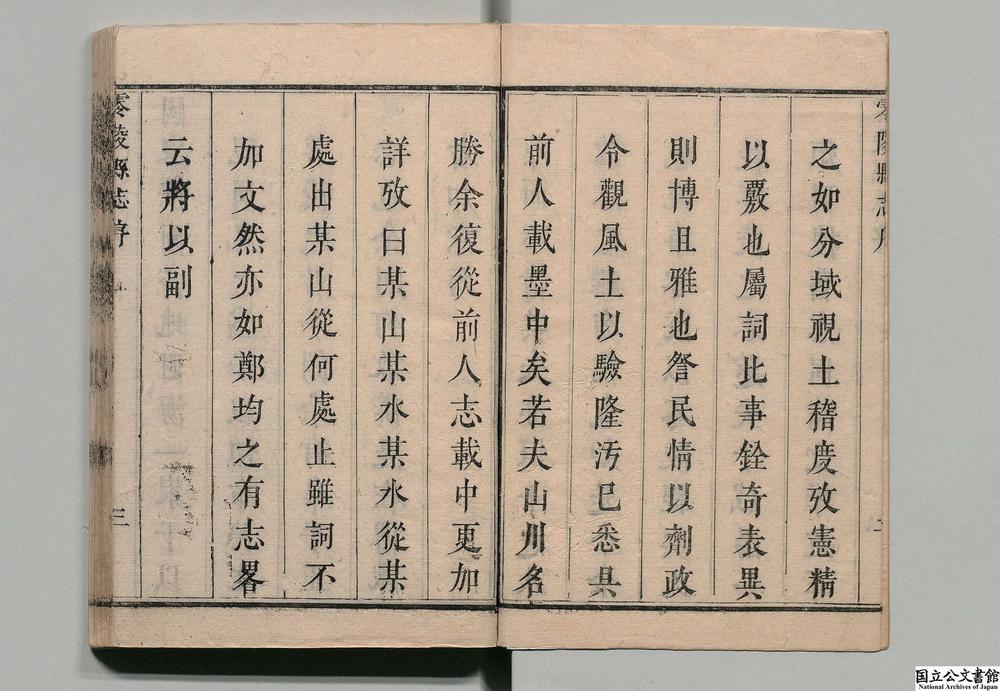 零陵縣志序
之如分域視土稽度攷憲精
以覈也屬詞比事銓奇表異
則博且雅也咨民情以劑政
令觀風土以驗隆汚已悉具
前人載墨中矣若夫山川名
二
勝余復從前人志載中更加
詳攷曰某山某水某水從某
處出某山從何處止雖詞不
加文然亦如鄭均之有志畧
云將以副
零陵縣志序
三
国立公文書館
National Archives of Japan